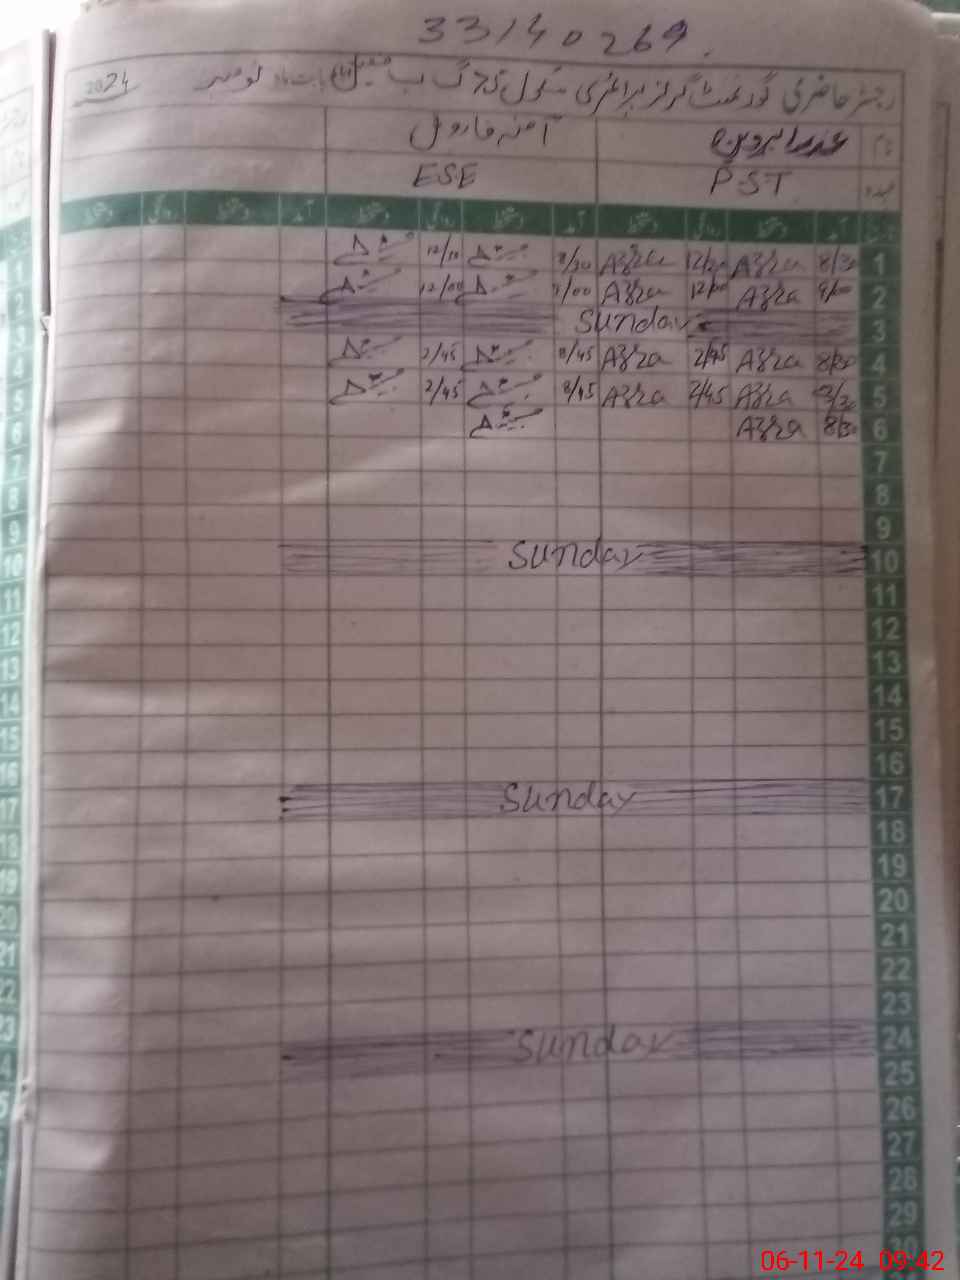 33140269
رجسٹر حاضری گورنمنٹ گرلز پرائمری سکول 75 گ ب بابت ماہ نومبر 2024
نام عذرا پروین آمنہ فاروق
عہدہ PST ESE
آمد دستخط روانگی دستخط آمد دستخط روانگی دستخط آمد دستخط روانگی دستخط
1 8/30 Azra 12/20 Azra 8/30 12/10
2 9/00 Azra 12/00 Azra 9/00 12/00
3 Sunday
4 8/30 Azra 2/45 Azra 8/45 2/45
5 8/30 Azra 2/45 Azra 8/45 2/45
6 8/30 Azra
7
8
9
10 Sunday
11
12
13
14
15
16
17 Sunday
18
19
20
21
22
23
24 Sunday
25
26
27
28
29
30
06-11-24 09:42